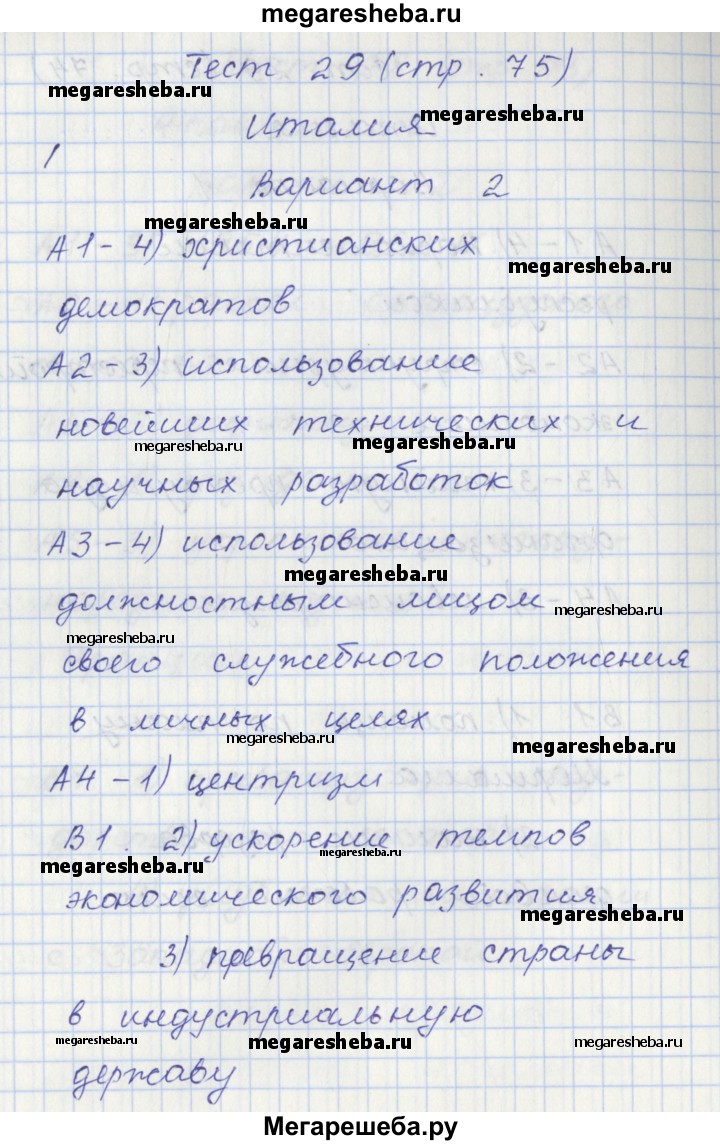 megaresheba.ru
Тест 29 (стр. 75)
megaresheba.ru
megaresheba.ru
Италия
Вариант 2
megaresheba.ru
А1 - 4) христианских
megaresheba.ru
демократов
А2 - 3) использование
новейших технических и
megaresheba.ru
megaresheba.ru
научных разработок
А3 - 4) использование
megaresheba.ru
должностным лицом
megaresheba.ru
megaresheba.ru
своего служебного положения
в личных целях
megaresheba.ru
megaresheba.ru
А4 - 1) центризм
В1. 2) ускорение темпов
megaresheba.ru
megaresheba.ru
экономического развития
megaresheba.ru
3) превращение страны
в индустриальную
megaresheba.ru
megaresheba.ru
megaresheba.ru
державу
Мегарешеба.ру